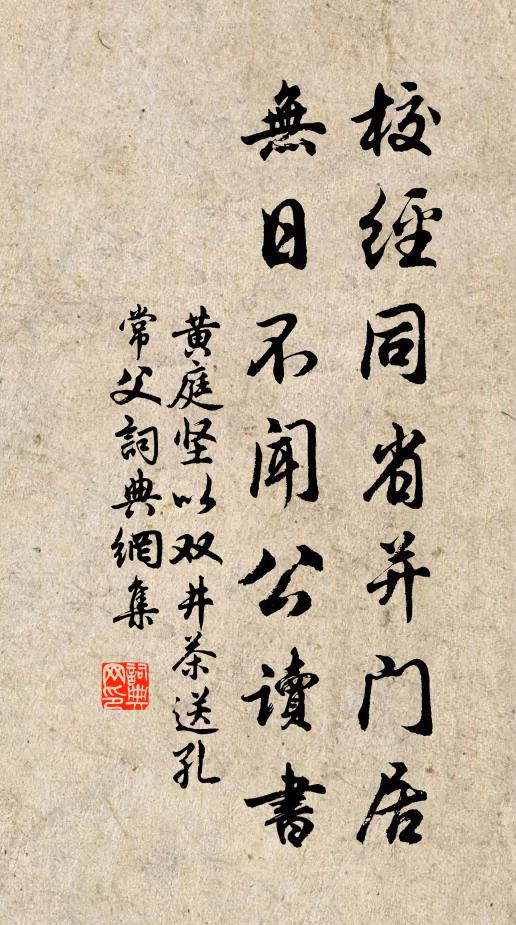 校經同省并門居
無日不闻公讀書
黄庭坚以双井茶送孔
常父詞典網集
詞典网印